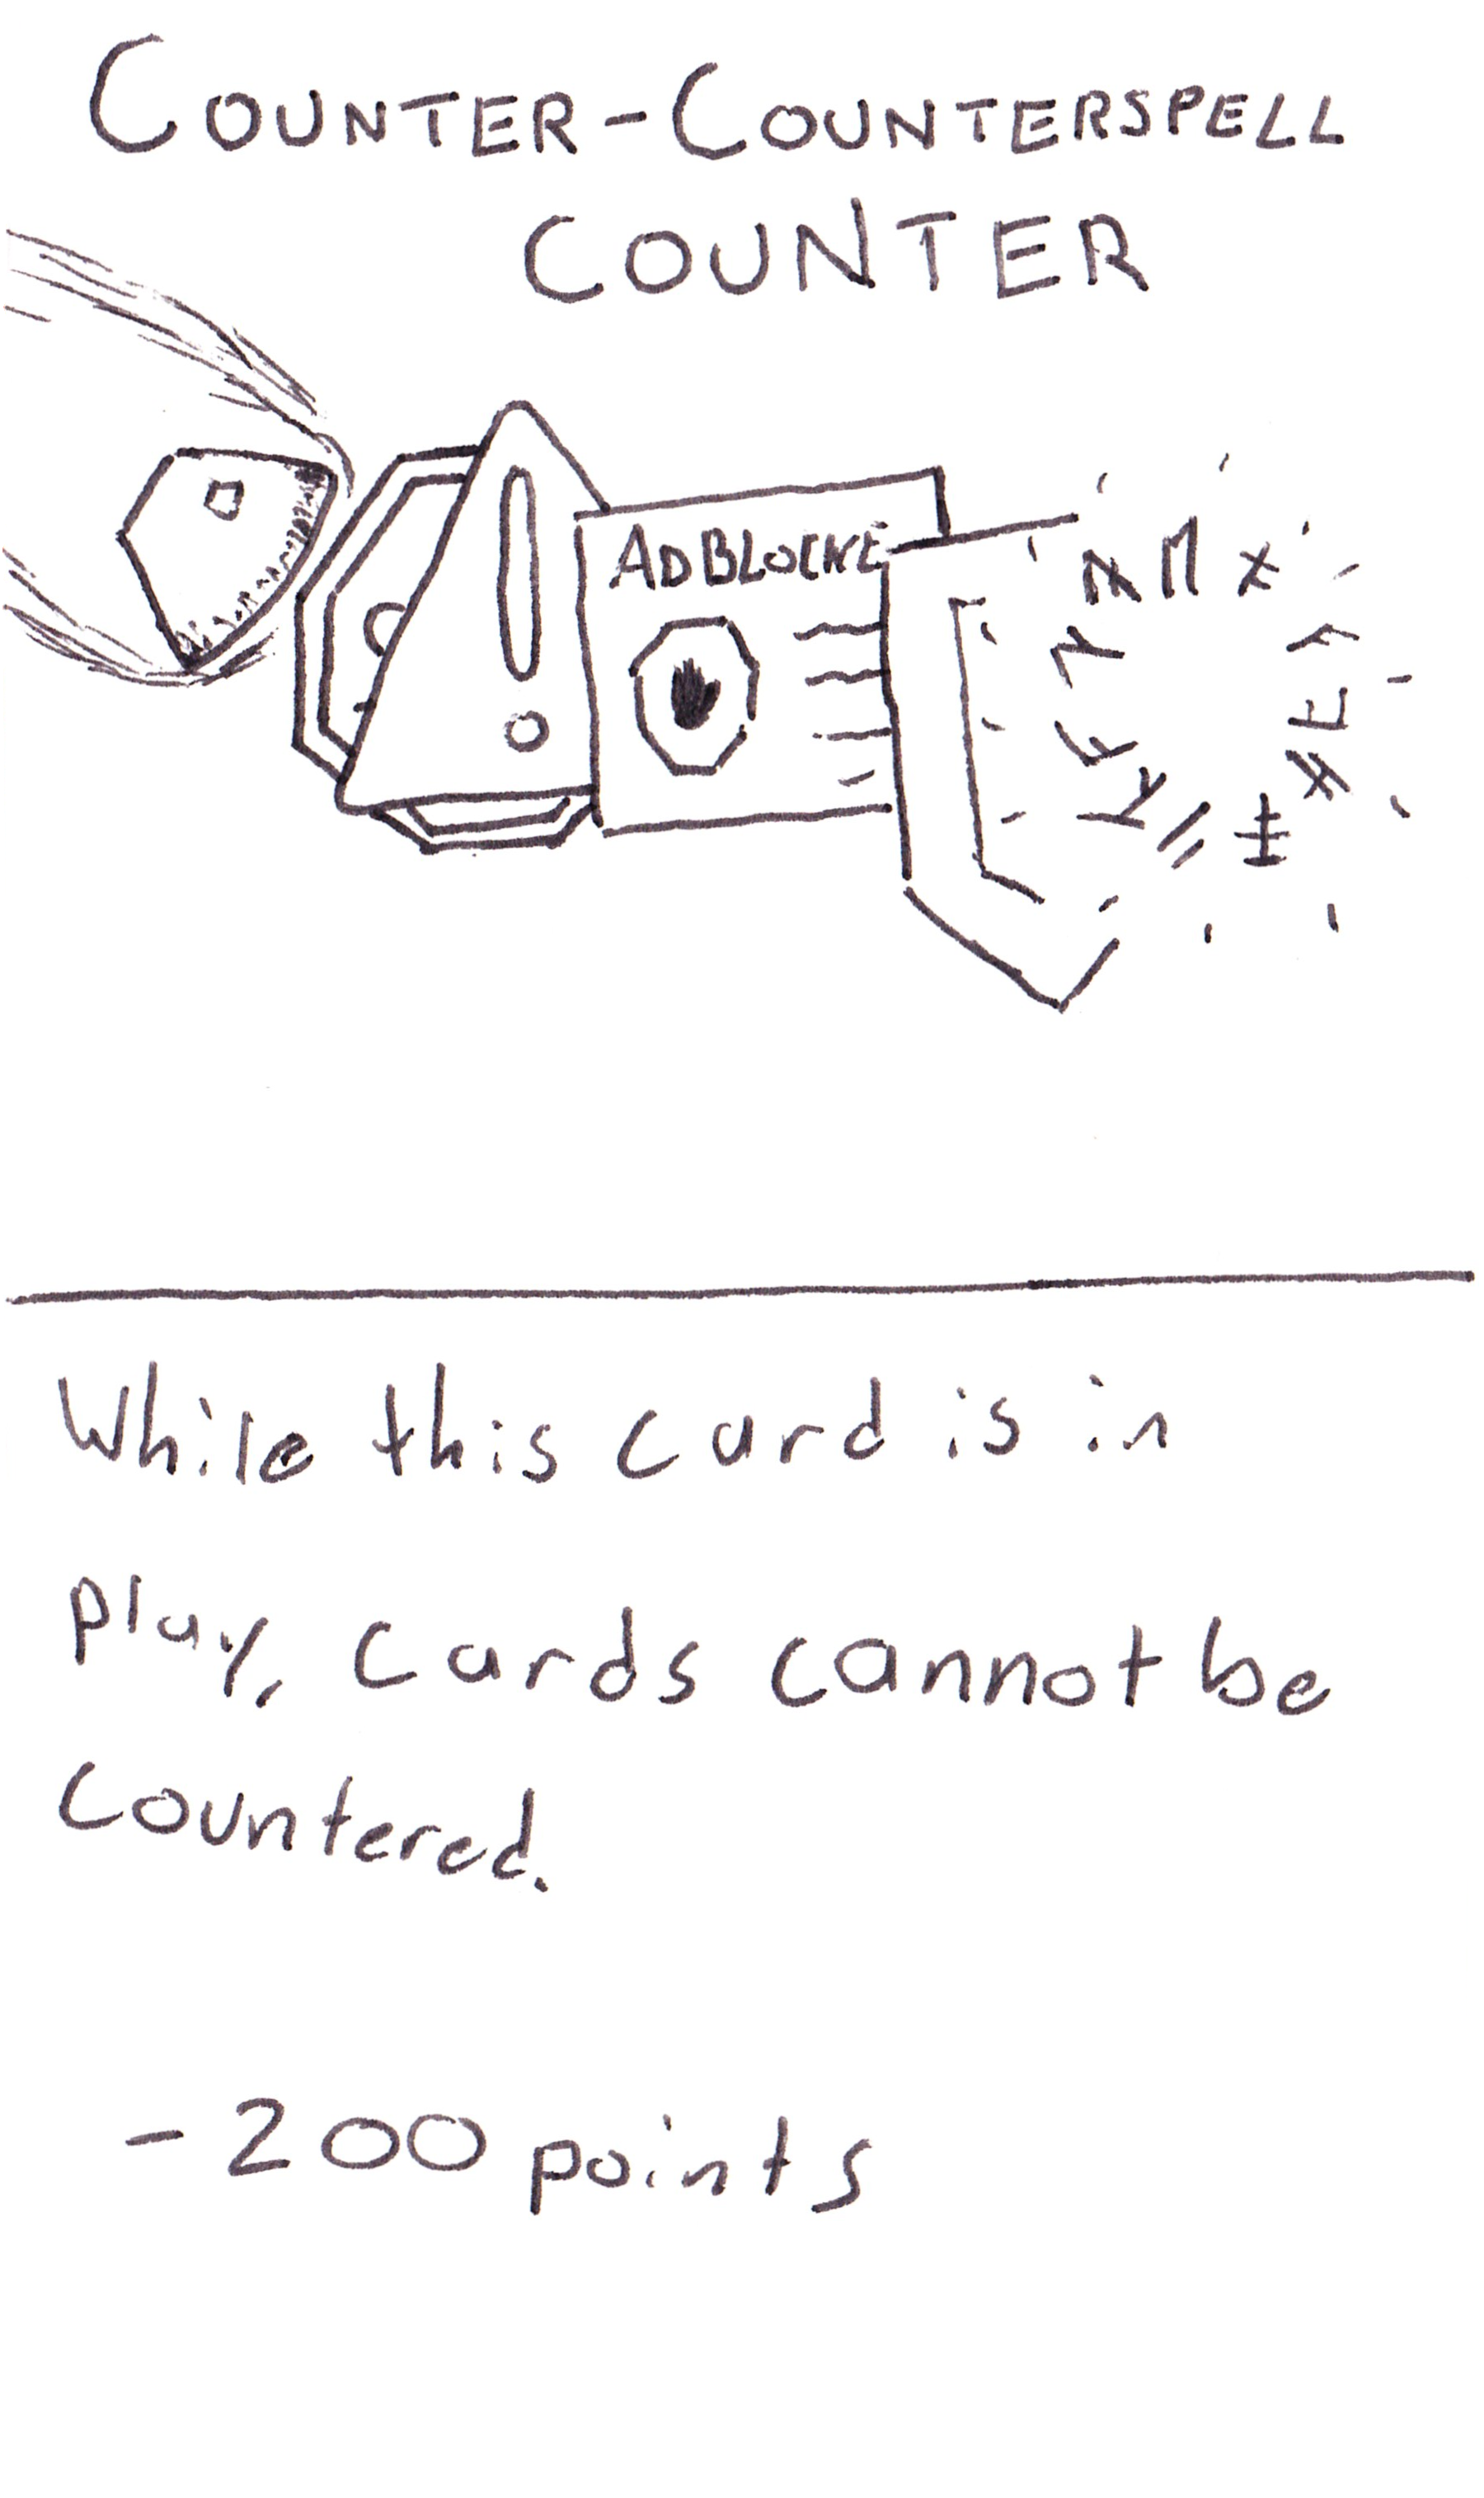 COUNTER-COUNTERSPELL
COUNTER
ADBLOCKE
While this card is in
play, cards cannot be
countered.
-200 points